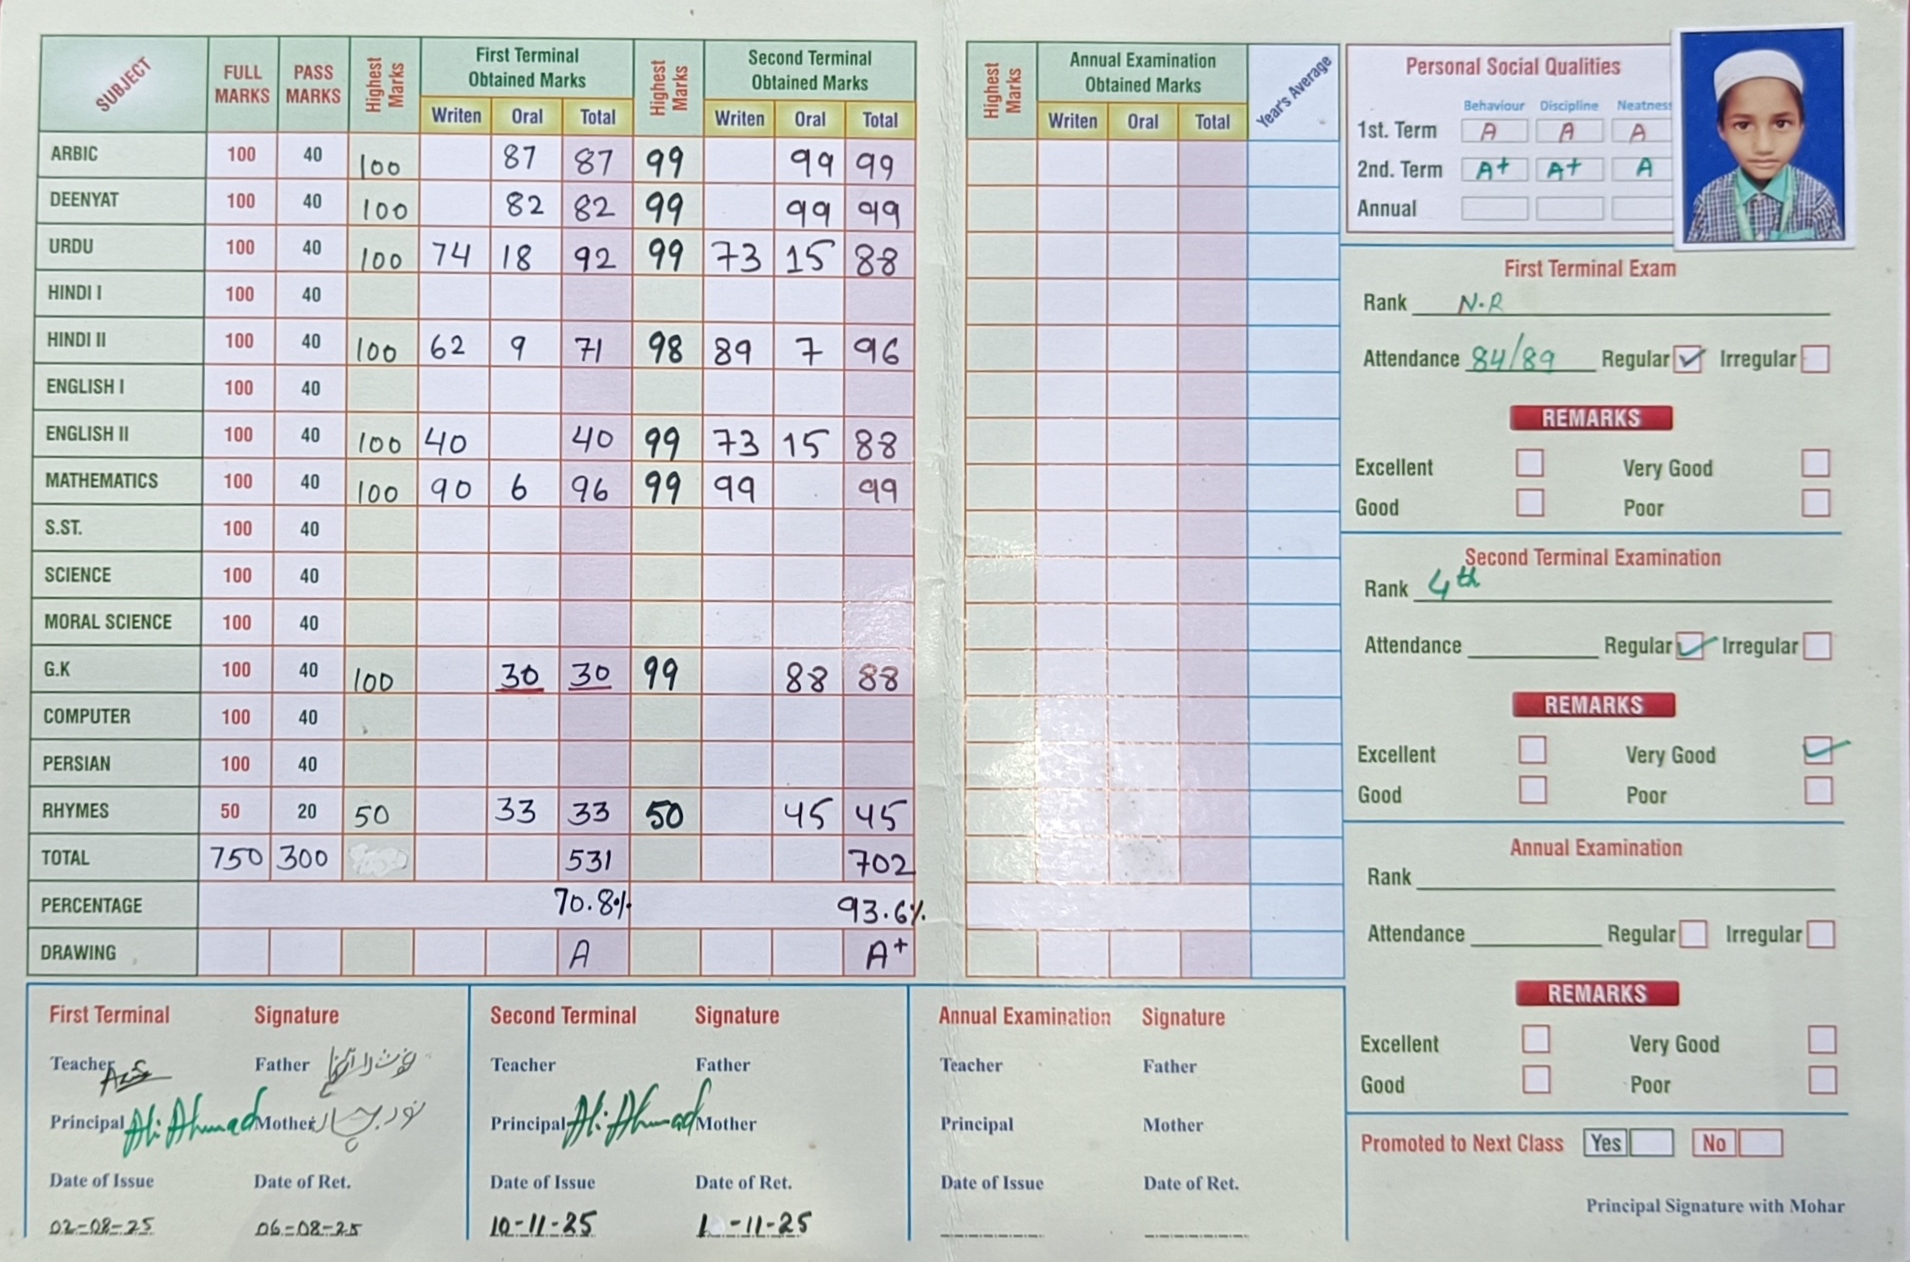 SUBJECT FULL MARKS PASS MARKS Highest Marks First Terminal Obtained Marks Highest Marks Second Terminal Obtained Marks
Writen Oral Total Writen Oral Total
ARBIC 100 40 100 87 87 99 99 99
DEENYAT 100 40 100 82 82 99 99 99
URDU 100 40 100 74 18 92 99 73 15 88
HINDI I 100 40
HINDI II 100 40 100 62 9 71 98 89 7 96
ENGLISH I 100 40
ENGLISH II 100 40 100 40 40 99 73 15 88
MATHEMATICS 100 40 100 90 6 96 99 99 99
S.ST. 100 40
SCIENCE 100 40
MORAL SCIENCE 100 40
G.K 100 40 100 30 30 99 88 88
COMPUTER 100 40
PERSIAN 100 40
RHYMES 50 20 50 33 33 50 45 45
TOTAL 750 300 531 702
PERCENTAGE 70.8% 93.6%
DRAWING A A+
Highest Marks Annual Examination Obtained Marks Year's Average
Writen Oral Total
Personal Social Qualities
Behaviour Discipline Neatness
1st. Term A A A
2nd. Term A+ A+ A
Annual
First Terminal Exam
Rank N.R
Attendance 84/89 Regular Irregular
REMARKS
Excellent Very Good
Good Poor
Second Terminal Examination
Rank 4th
Attendance Regular Irregular
REMARKS
Excellent Very Good
Good Poor
Annual Examination
Rank
Attendance Regular Irregular
REMARKS
Excellent Very Good
Good Poor
Promoted to Next Class Yes No
Principal Signature with Mohar
First Terminal Signature
Teacher Father
Principal Ali Ahmad Mother
Date of Issue Date of Ret.
02-08-25 06-08-25
Second Terminal Signature
Teacher Father
Principal Ali Ahmad Mother
Date of Issue Date of Ret.
10-11-25 1 -11-25
Annual Examination Signature
Teacher Father
Principal Mother
Date of Issue Date of Ret.